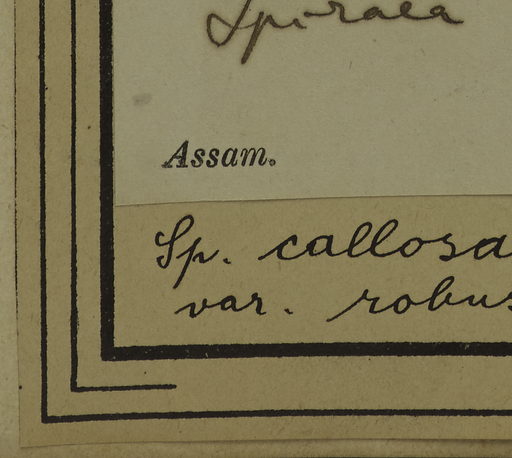 Spiraea
Assam.
Sp. callosa
var. robus